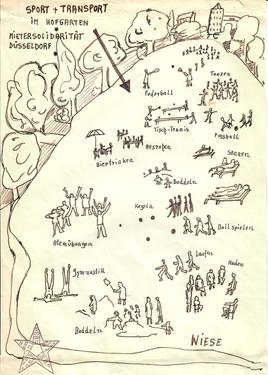 SPORT + TRANSPORT
IM HOFGARTEN
MIETERSOLIDARITÄT
DÜSSELDORF
Tanzen
Federball
Tisch-Tennis
Fussball
Ausruhen
Sonnen
Biertrinken
Buddeln
Kegeln
Ball spielen
Atemübungen
Laufen
Reden
Gymnastik
Buddeln
NIESE